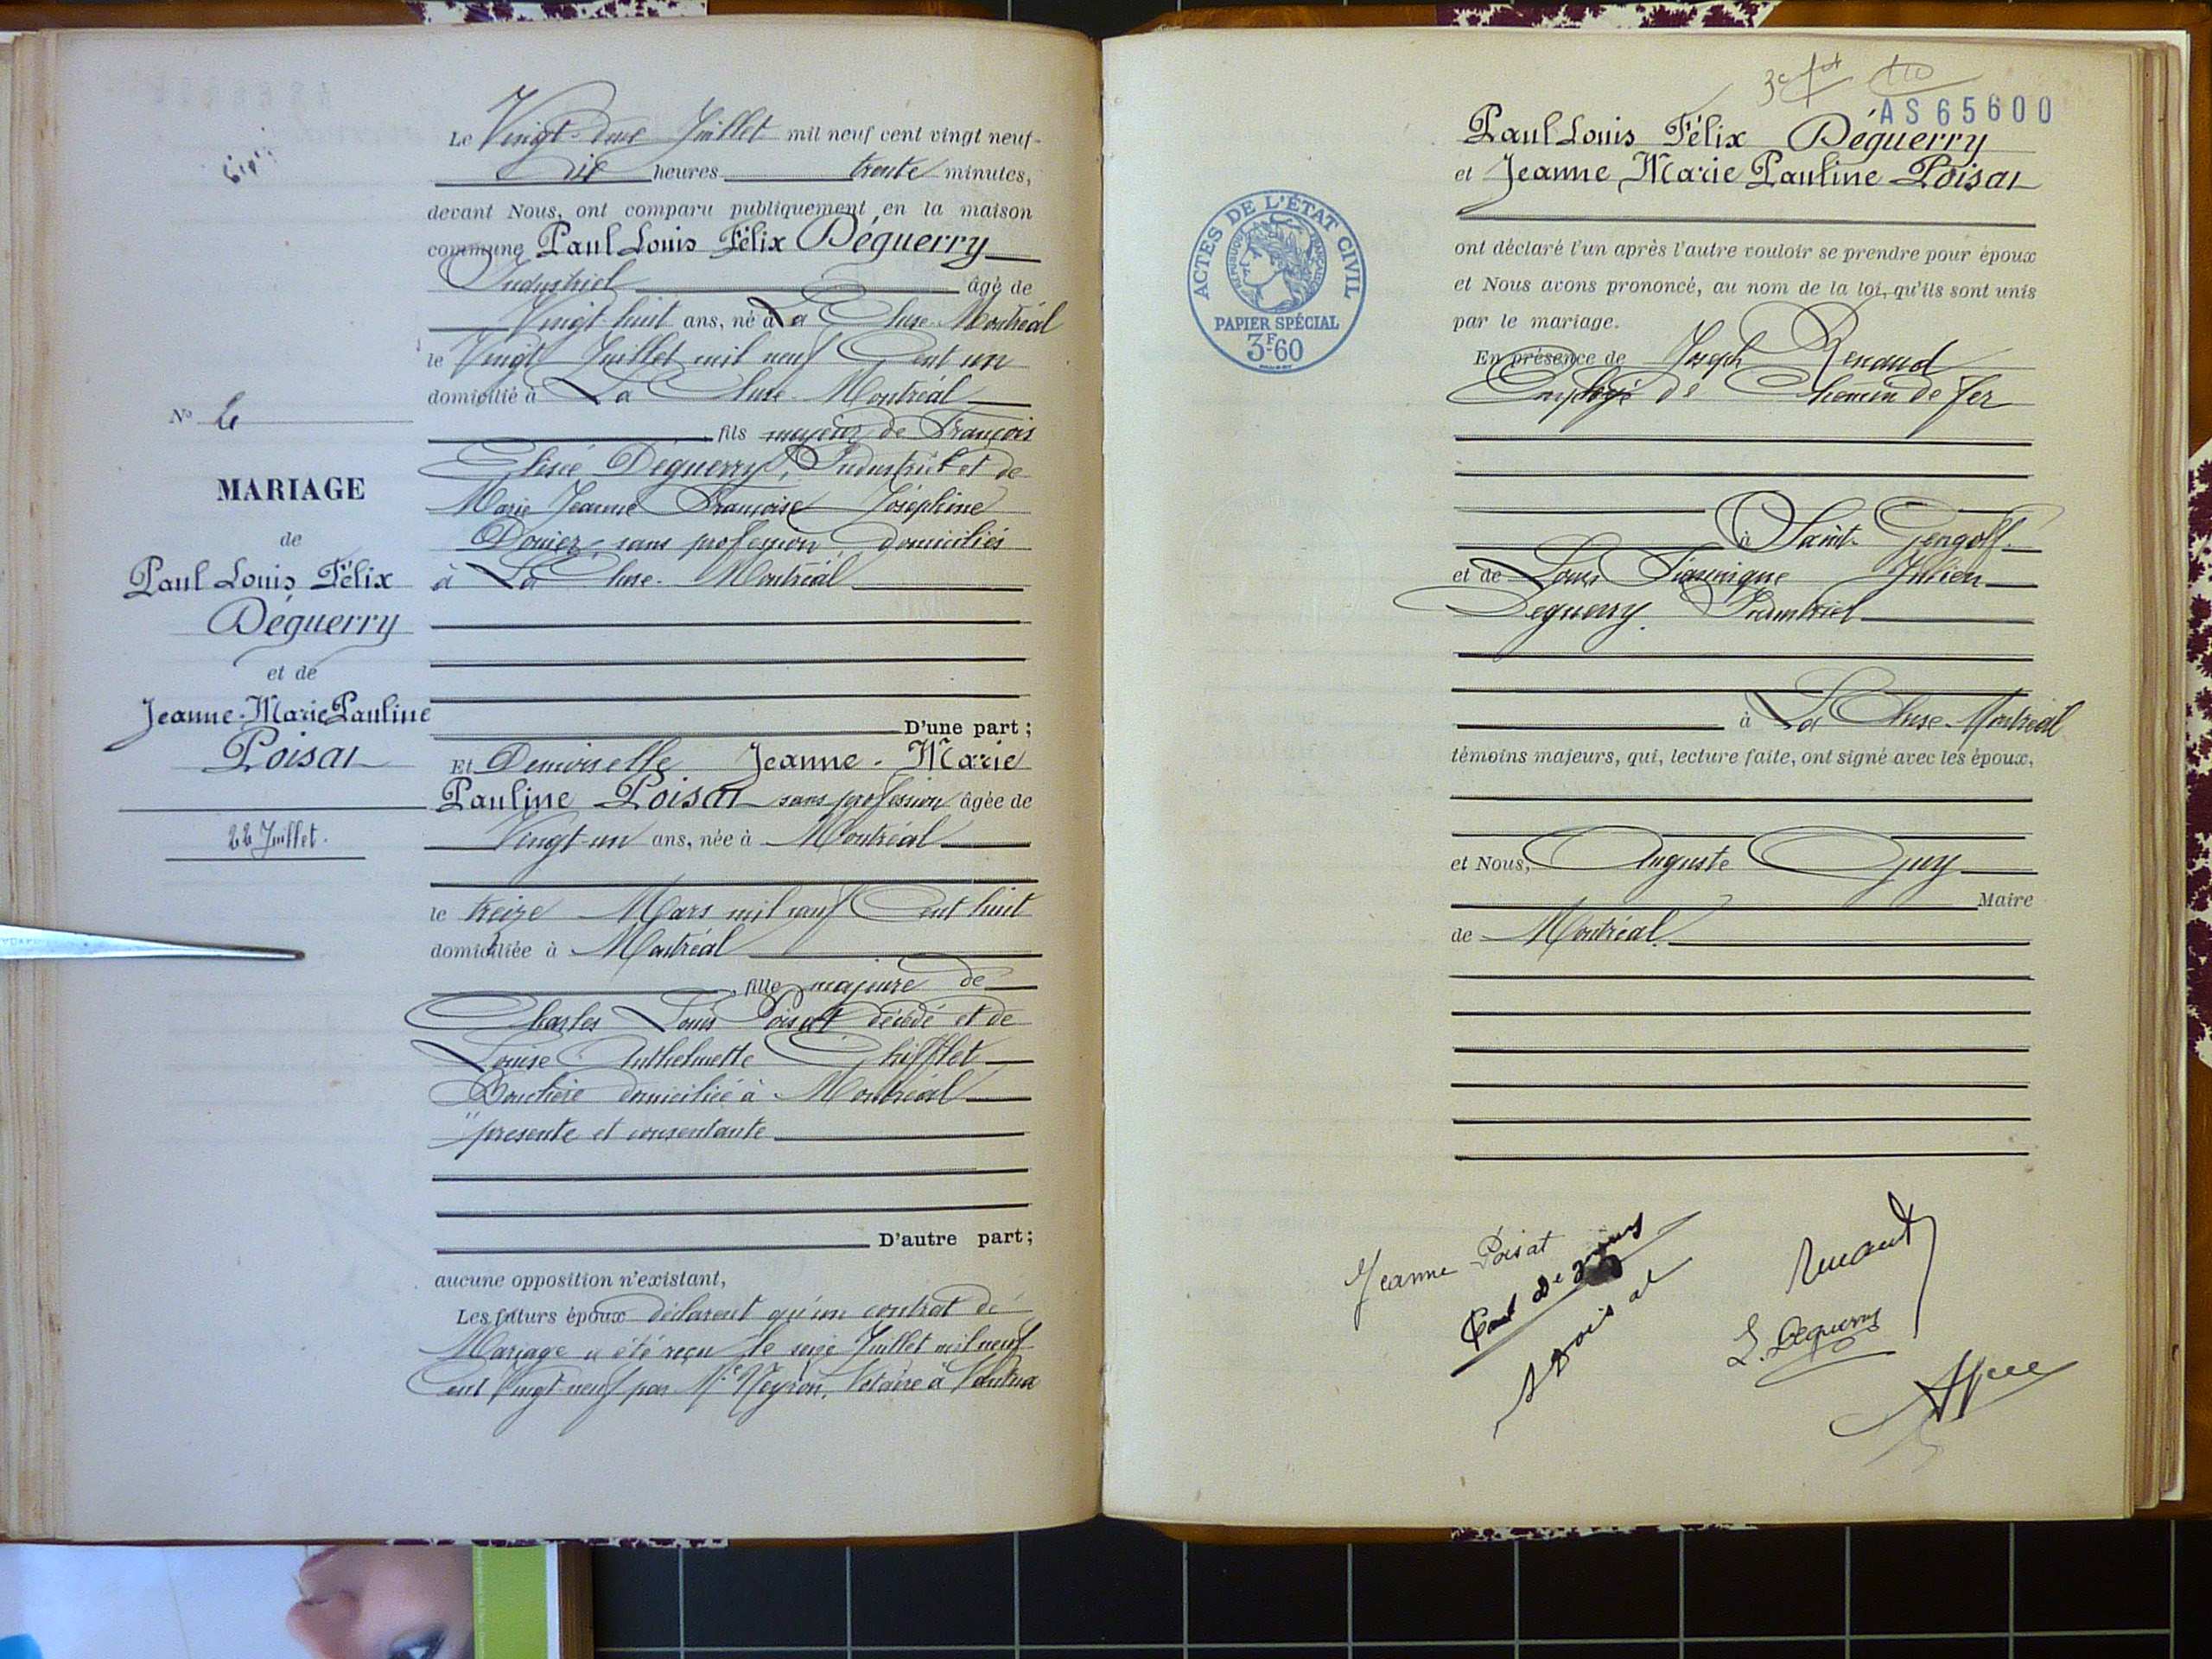 Le Vingt-deux Juillet mil neuf cent vingt neuf
dix heures trente minutes,
devant Nous, ont comparu publiquement en la maison
commune Paul Louis Félix Déguerry
Industriel âgé de
Vingt huit ans, né à La Cluse-Montréal
le Vingt Juillet mil neuf Cent un
domicilié à La Cluse-Montréal
fils majeur de François
Elisée Déguerry, Industriel et de
Marie Jeanne Françoise Joséphine
sans profession, domiciliés
à La Cluse-Montréal
D'une part;
Et Demoiselle Jeanne-Marie
Pauline Poisat sans profession âgée de
Vingt-un ans, née à Montréal
le treize Mars mil neuf Cent huit
domiciliée à Montréal
, fille majeure de
Charles Louis Poisat décédé et de
Louise Anthelmette Chifflet
Bouchère domiciliée à Montréal
présente et consentante
D'autre part;
aucune opposition n'existant,
Les futurs époux déclarent qu'un contrat de
Mariage a été reçu le seize Juillet mil neuf
cent Vingt-neuf par Me Neyron, Notaire à Nantua
No 6
MARIAGE
de
Paul Louis Félix
Déguerry
et de
Jeanne-Marie Pauline
Poisat
22 Juillet.
AS65600
Paul Louis Félix Déguerry
et Jeanne Marie Pauline Poisat
ACTES DE L'ÉTAT CIVIL
RÉPUBLIQUE FRANÇAISE
PAPIER SPÉCIAL
3F60
ont déclaré l'un après l'autre vouloir se prendre pour époux
et Nous avons prononcé, au nom de la loi, qu'ils sont unis
par le mariage.
En présence de Joseph Renaud
Employé de Chemin de fer
à Saint-Gengolf
et de Louis Julien
Deguerry Industriel
à La Cluse-Montréal
témoins majeurs, qui, lecture faite, ont signé avec les époux,
et Nous, Auguste Guy
Maire
de Montréal.
Jeanne Poisat
Renaud
Poisat
L. Deguerry